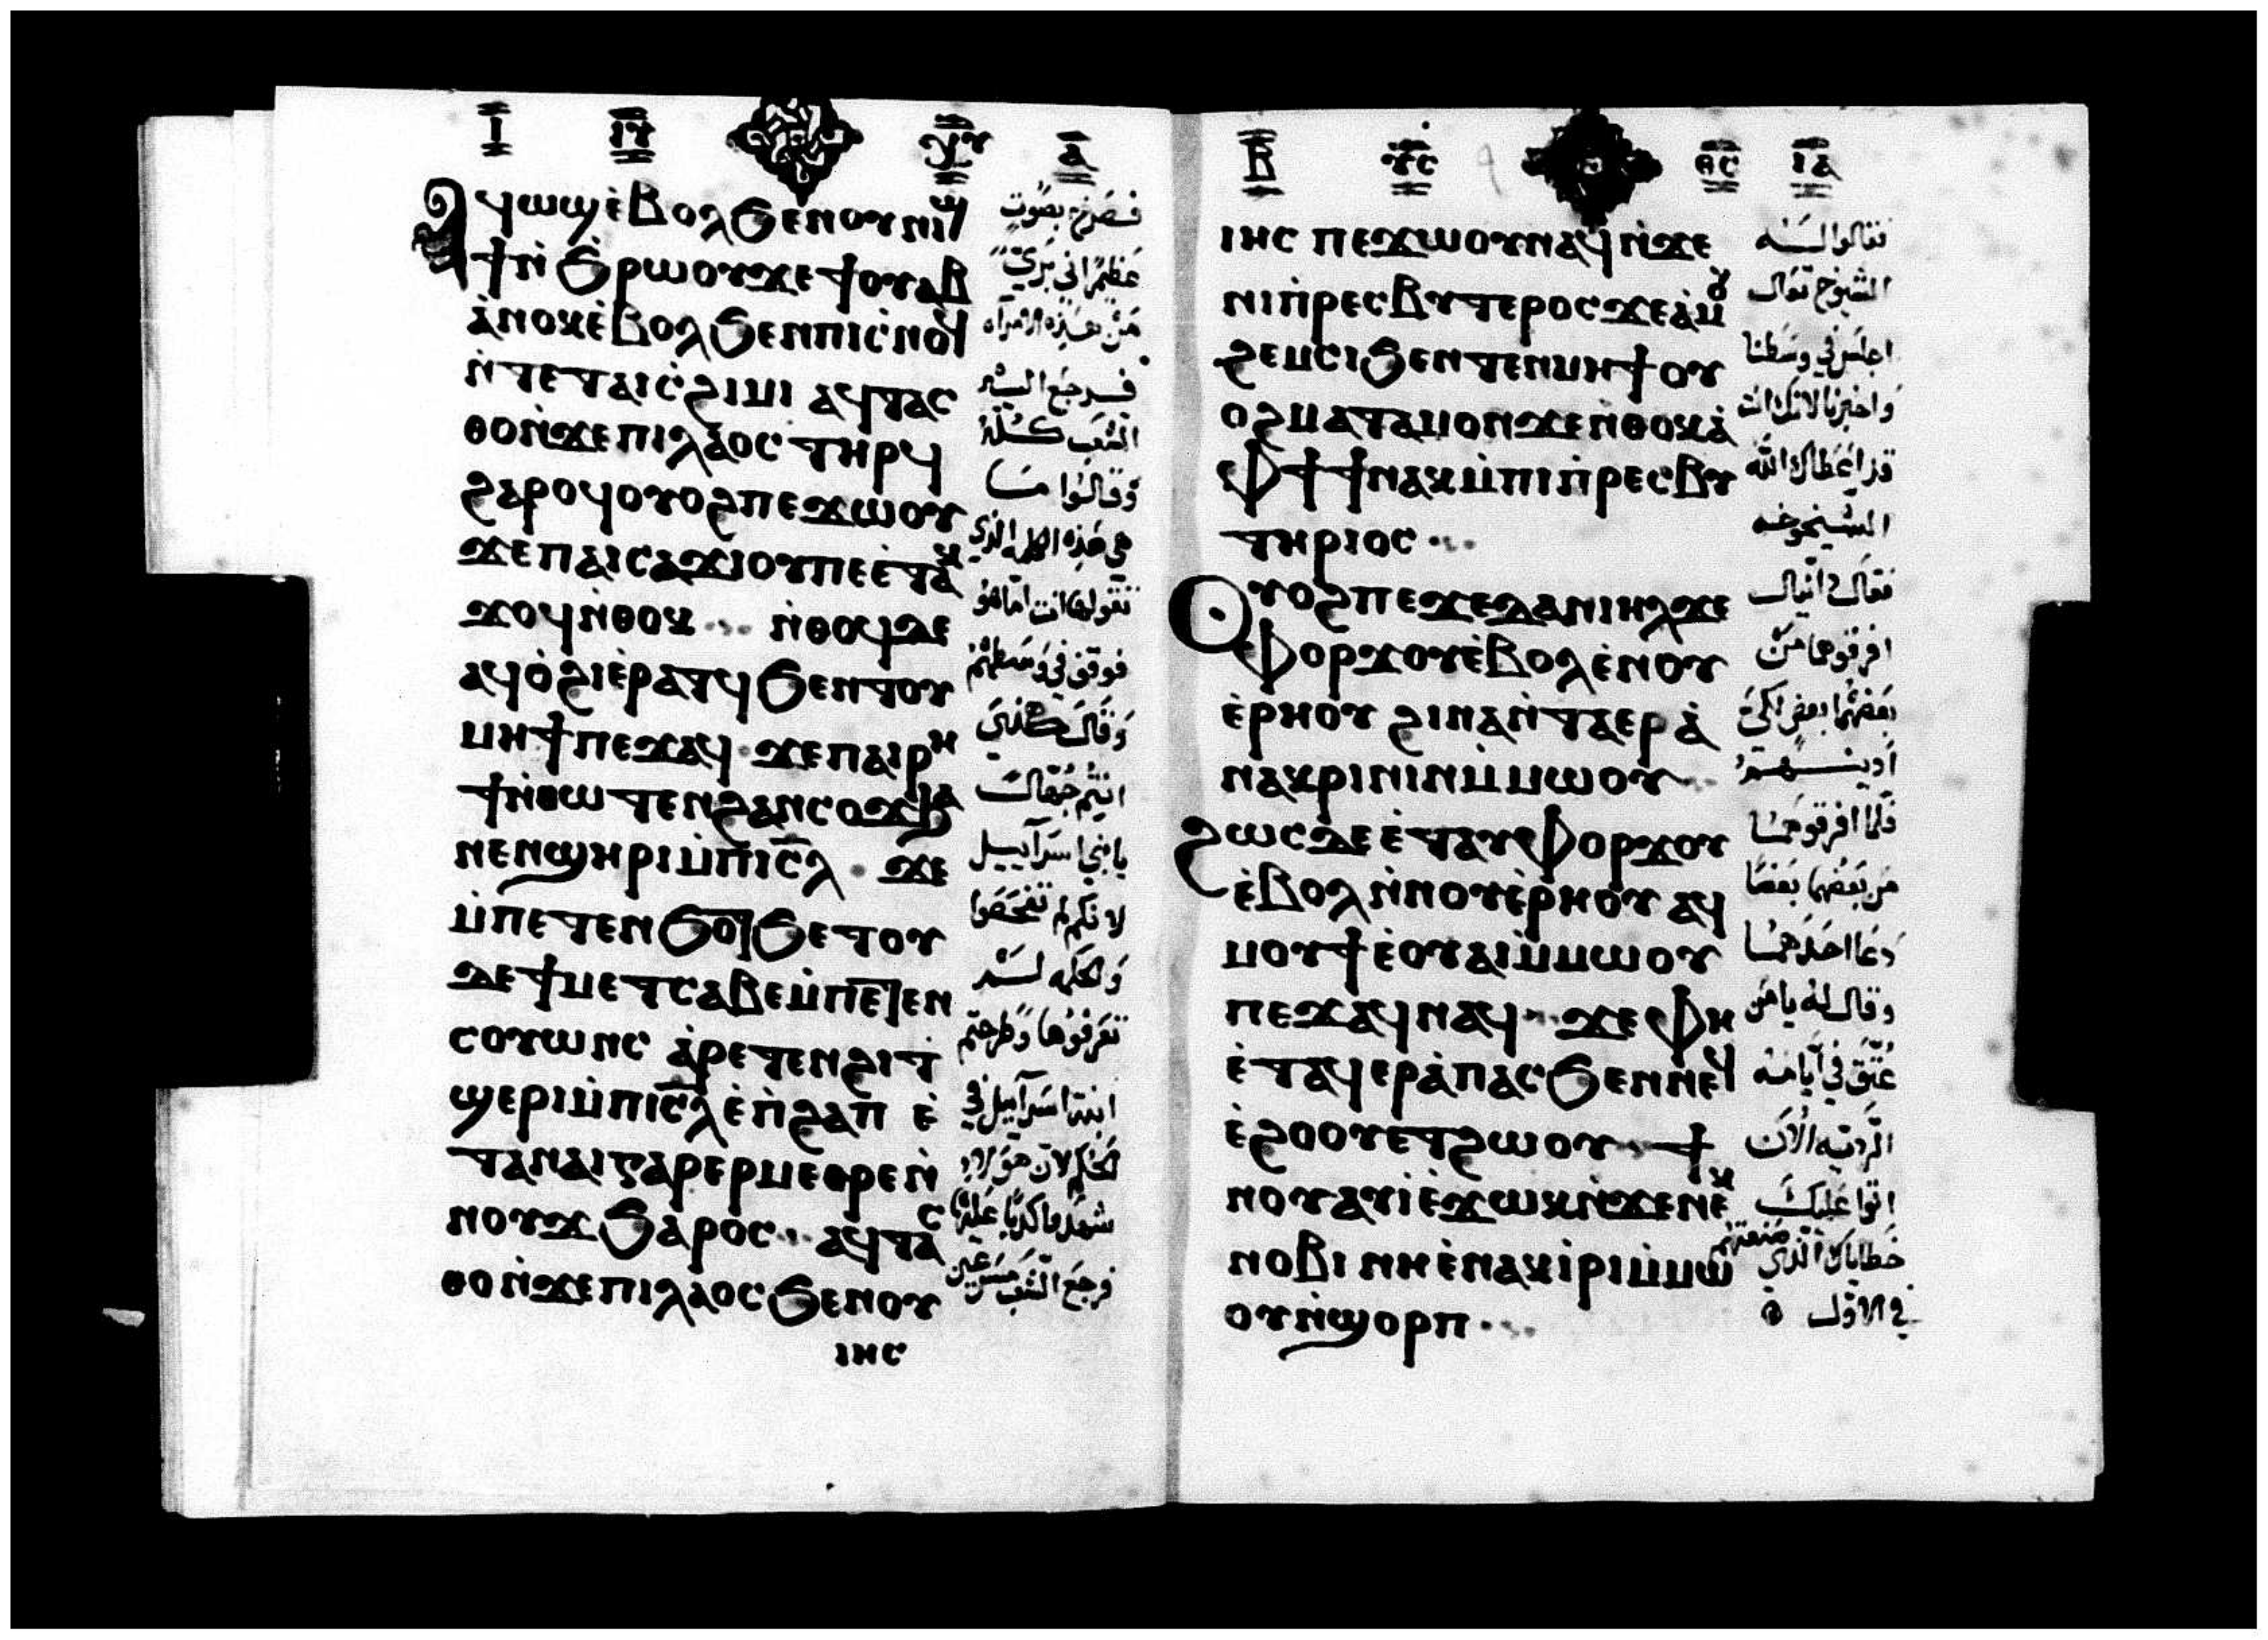 Ⲓ ⲒⲨ Ⲁ
Ⲁϥⲱϣⲉ̀ⲃⲟⲗϧⲉⲛⲟⲩⲛⲓϣ
ϯⲛ̀ϧⲣⲱⲟⲩϫⲉϯⲟⲩⲁⲃ
ⲁ̀ⲛⲟⲕⲉ̀ⲃⲟⲗϧⲉⲛⲡⲓⲥ̀ⲛⲟϥ
ⲛ̀ⲧⲉⲧⲁⲓⲥ̀ϩⲓⲙⲓ ⲁϥⲧⲁⲥ
ⲑⲟⲛ̀ϫⲉⲡⲓⲗⲁ̀ⲟⲥ ⲧⲏⲣϥ
ϩⲁⲣⲟϥⲟⲩⲟϩⲡⲉϫⲱⲟⲩ
ϫⲉⲡⲁⲓⲥⲁϫⲓⲟⲩⲡⲉⲉ̀ⲧⲁⲕ
ϫⲟϥⲛ̀ⲑⲟⲕ ⲛ̀ⲑⲟϥⲇⲉ
ⲁϥⲟ̀ϩⲓⲉ̀ⲣⲁⲧϥϧⲉⲛⲧⲟⲩ
ⲙⲏϯⲡⲉϫⲁϥ ϫⲉⲡⲁⲓⲣⲏ
ϯⲛ̀ⲑⲱⲧⲉⲛϩⲁⲛⲥⲟϫ
ⲛⲉⲛϣⲏⲣⲓⲙ̀ⲡⲓⲥ̅ⲗ ϫⲉ
ⲙ̀ⲡⲉⲧⲉⲛϧⲟⲧϧⲉⲧⲟⲩ
ⲇⲉϯⲙⲉⲧⲥⲁⲃⲉⲙ̀ⲡⲉⲧⲉⲛ
ⲥⲟⲩⲱⲛⲥ ⲁ̀ⲣⲉⲧⲉⲛϩⲓⲧ
ϣⲉⲣⲓⲙ̀ⲡⲓⲥ̅ⲗⲉ̀ⲡ̀ϩⲁⲡ ⲉ̀
ⲧⲁⲛⲁⲓⲅⲁⲣⲉⲣⲙⲉⲑⲣⲉⲛ̀
ⲛⲟⲩϫϧⲁⲣⲟⲥ ⲁϥⲧⲁⲥ
ⲑⲟⲛ̀ϫⲉⲡⲓⲗⲁⲟⲥϧⲉⲛⲟⲩ
ⲓⲏⲥ
فصرخ بصوت
عظيم اني بري
من هذه الامرأه
فرجع اليه
الشعب كله
وقالوا ما
هي هذه الكلمه الذي
تقولها انت اما هو
فوقف في وسطهم
وقال هكذي
انتم جهال
يا بني اسرآييل
لانكم لم تفحصوا
تعرفوها وطرحتم
فرجع الشعب مسرعين
Ⲃ ⲨⲤ ⲐⲤ ⲒⲀ
ⲓⲏⲥ ⲡⲉϫⲱⲟⲩⲛⲁϥⲛ̀ϫⲉ
ⲛⲓⲡ̀ⲣⲉⲥⲃⲩⲧⲉⲣⲟⲥϫⲉⲁ̀ⲙⲟⲩ
ϩⲉⲙⲥⲓϧⲉⲛⲧⲉⲛⲙⲏϯⲟⲩ
ⲟϩⲙⲁⲧⲁⲙⲟⲛϫⲉⲛ̀ⲑⲟⲕⲁ̀
ⲫϯϯⲛⲁⲕⲙ̀ⲡⲓⲡ̀ⲣⲉⲥⲃⲩ
ⲧⲏⲣⲓⲟⲥ
Ⲟⲩⲟϩⲡⲉϫⲉⲇⲁⲛⲓⲏⲗϫⲉ
ⲫⲟⲣϫⲟⲩⲉ̀ⲃⲟⲗⲉ̀ⲛⲟⲩ
ⲉ̀ⲣⲏⲟⲩ ϩⲓⲛⲁⲛ̀ⲧⲁⲉⲣⲁ̀
ⲛⲁⲕⲣⲓⲛⲓⲛⲙ̀ⲙⲱⲟⲩ
ϩⲱⲥⲇⲉⲉ̀ⲧⲁⲩⲫⲟⲣϫⲟⲩ
ⲉ̀ⲃⲟⲗⲛ̀ⲛⲟⲩⲉ̀ⲣⲏⲟⲩ ⲁϥ
ⲙⲟⲩϯⲉ̀ⲟⲩⲁⲓⲙ̀ⲙⲱⲟⲩ
ⲡⲉϫⲁϥⲛⲁϥ ϫⲉⲫⲏ
ⲉ̀ⲧⲁϥⲉⲣⲁ̀ⲡⲁⲥϧⲉⲛⲛⲉϥ
ⲉ̀ϩⲟⲟⲩⲉⲧϩⲱⲟⲩ ϯ
ⲛⲟⲩⲁⲩⲓ̀ⲉ̀ϫⲱⲕⲛ̀ϫⲉⲛⲉⲕ
ⲛⲟⲃⲓ ⲛⲏⲉ̀ⲛⲁⲕⲓ̀ⲣⲓⲙ̀ⲙⲱ
ⲟⲩⲛ̀ϣⲟⲣⲡ
فقالوا له
الشيوخ تعال
اجلس في وسطنا
واخبرنا لانك انت
قد اعطاك الله
الشيخوخه
فقال دانيال
افرقوهما من
بعضهما بعض لكي
فلما افرقوهما
من بعضهما بعضا
دعا احدهما
وقال له يا من
عتق في ايامه
الرديه الان
اتوا عليك
خطاياك الذي صنعتهم
في الاول